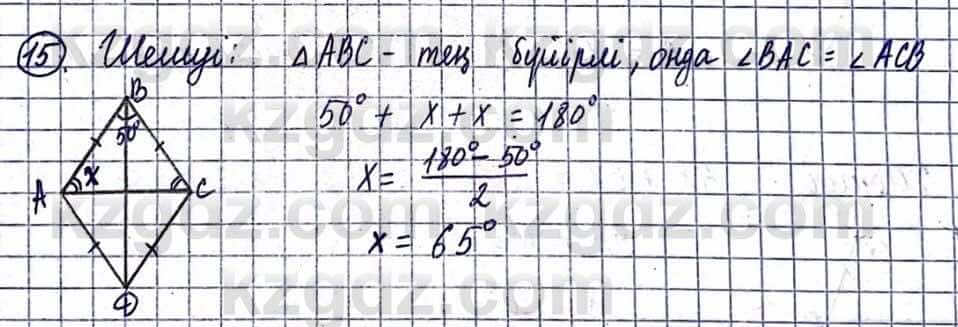 15. Шешуі: △ABC - тең бүйірлі, онда ∠BAC = ∠ACB
B
50° + x + x = 180°
50°
x = (180° - 50°)/2
x
A
C
x = 65°
D
kzgdz.com
kzgdz.com
kzgdz.com
kzgdz.com